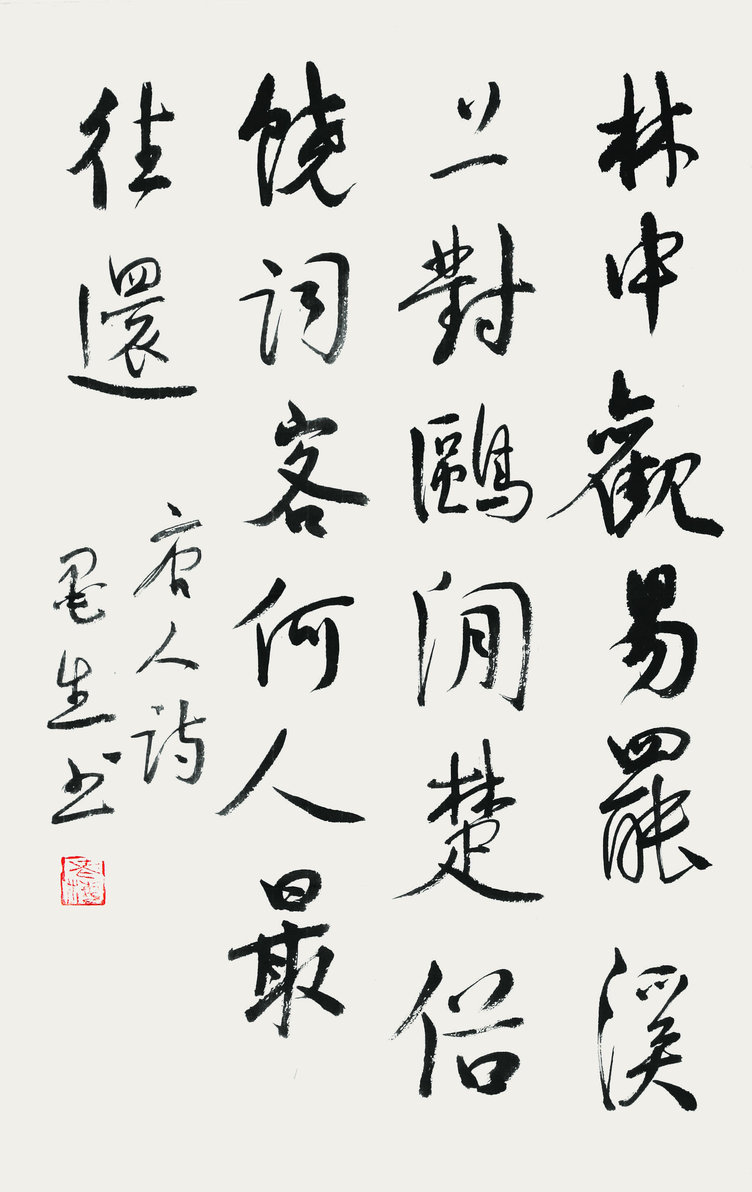 林中觀易罷溪
上對鷗閒楚俗
饒詞客何人最
往還
唐人詩
墨生书